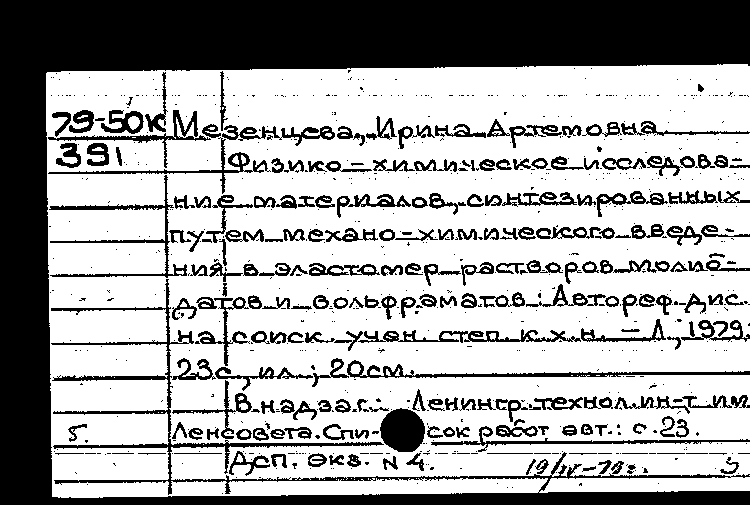 79-50к Мезенцева, Ирина Артемовна
391 Физико-химическое исследова-
ние материалов, синтезированных
путем механо-химического введе-
ния в эластомер растворов молиб-
датов и вольфраматов: Автореф. дис.
на соиск. учен. степ. к.х.н. - Л., 1979.
23с., ил.; 20см.
В надзаг.: Ленингр. технол. ин-т им
5. Ленсовета. Спи- сок работ авт.: с.23.
Дсп. экз. N 4. 19/IV-79г.